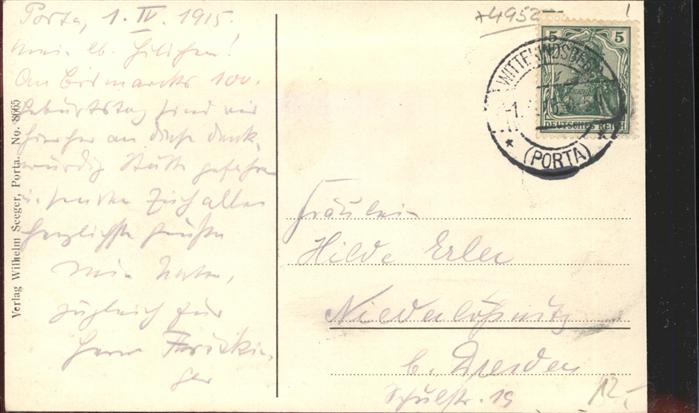 Porta, 1. IV. 1915.
Mein lb. Hildchen!
An Bismarcks 100.
Geburtstag sind wir
hierher an diese denk-
würdig Stätte gefahren
u. senden Euch allen
herzlichste Grüße
Mein
zugleich für
Herrn
Verlag Wilhelm Seeger, Porta. No. 8665
+4952-
5 5
DEUTSCHES REICH
WITTEKINDSBERG
-1.
* (PORTA) *
Fräulein
Hilde Erler
Niederlößnitz
b. Dresden
Schulstr. 19
12.-